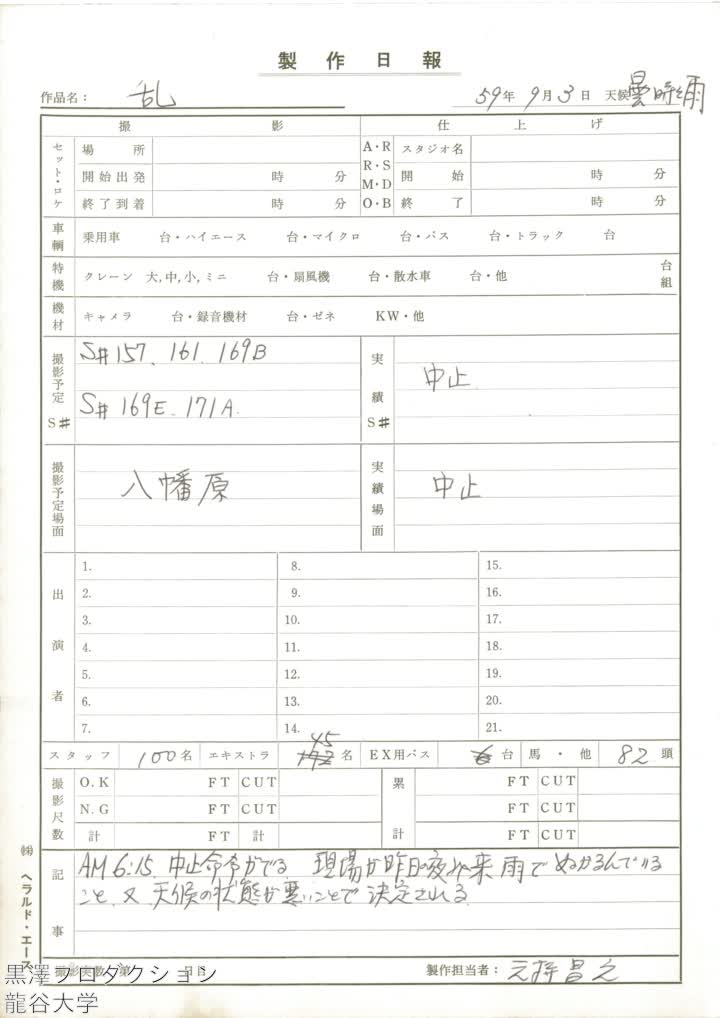 製作日報
作品名： 乱 59年 9月 3日 天候 曇時々雨
撮影 仕上げ
セット・ロケ 場所 A・R スタジオ名
開始出発 時 分 R・S 開始 時 分
M・D
終了到着 時 分 O・B 終了 時 分
車輌 乗用車 台・ハイエース 台・マイクロ 台・バス 台・トラック 台
特機 クレーン 大,中,小,ミニ 台・扇風機 台・散水車 台・他 台組
機材 キャメラ 台・録音機材 台・ゼネ KW・他
撮影予定S# S#157. 161. 169B 実績S# 中止
S#169E. 171A.
撮影予定場面 八幡原 実績場面 中止
出演者
1. 8. 15.
2. 9. 16.
3. 10. 17.
4. 11. 18.
5. 12. 19.
6. 13. 20.
7. 14. 21.
45
スタッフ 100名 エキストラ 名 EX用バス 台 馬・他 82頭
撮影尺数 O.K FT CUT 累計 FT CUT
N.G FT CUT FT CUT
計 FT 計 FT CUT
記事 AM 6:15 中止命令がでる 現場が昨日の夜 来雨でぬかるんでいる
こと、又 天候の状態が悪いことで決定される
㈱ヘラルド・エース
撮影実数 第 日目 製作担当者：
黒澤プロダクション
龍谷大学